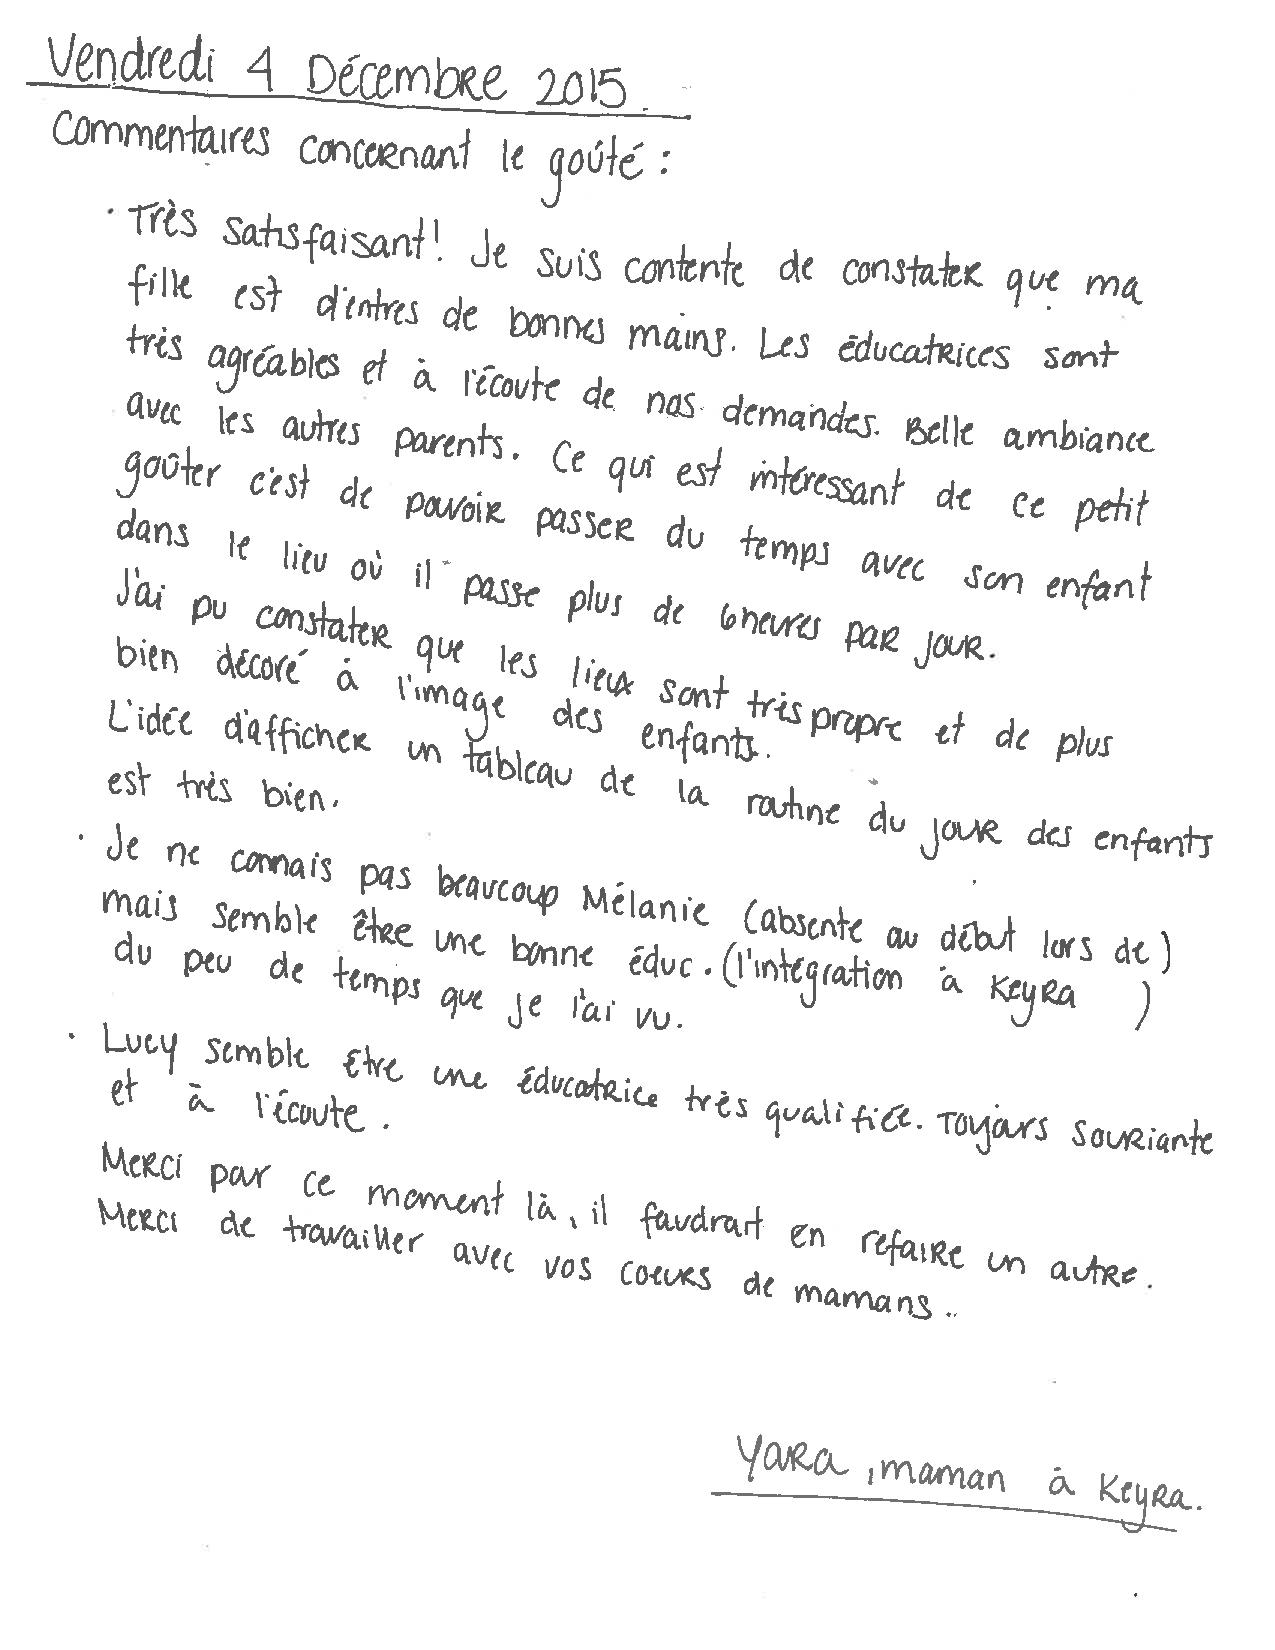 Vendredi 4 Décembre 2015.
Commentaires concernant le goûté :
· Très satisfaisant! Je suis contente de constater que ma
fille est d'entres de bonnes mains. Les éducatrices sont
très agréables et à l'écoute de nos demandes. Belle ambiance
avec les autres parents. Ce qui est intéressant de ce petit
goûter c'est de pouvoir passer du temps avec son enfant
dans le lieu où il passe plus de 6heures par jour.
J'ai pu constater que les lieux sont très propre et de plus
bien décoré à l'image des enfants.
L'idée d'afficher un tableau de la routine du jour des enfants
est très bien.
· Je ne connais pas beaucoup Mélanie (absente au début lors de)
mais semble être une bonne éduc. (l'intégration à Keyra )
du peu de temps que je l'ai vu.
· Lucy semble être une éducatrice très qualifiée. Toujours souriante
et à l'écoute.
Merci pour ce moment là, il faudrait en refaire un autre.
Merci de travailler avec vos coeurs de mamans..
Yara, maman à Keyra.